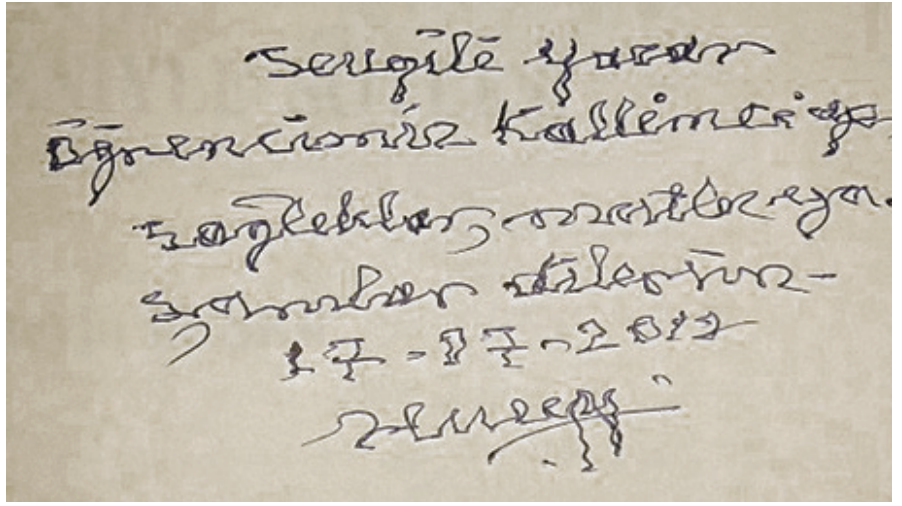 Sevgili yazar
öğrencimiz Kallimci'ye
sağlıklar, mutlu ya-
şamlar dilerim-
17-17-2012